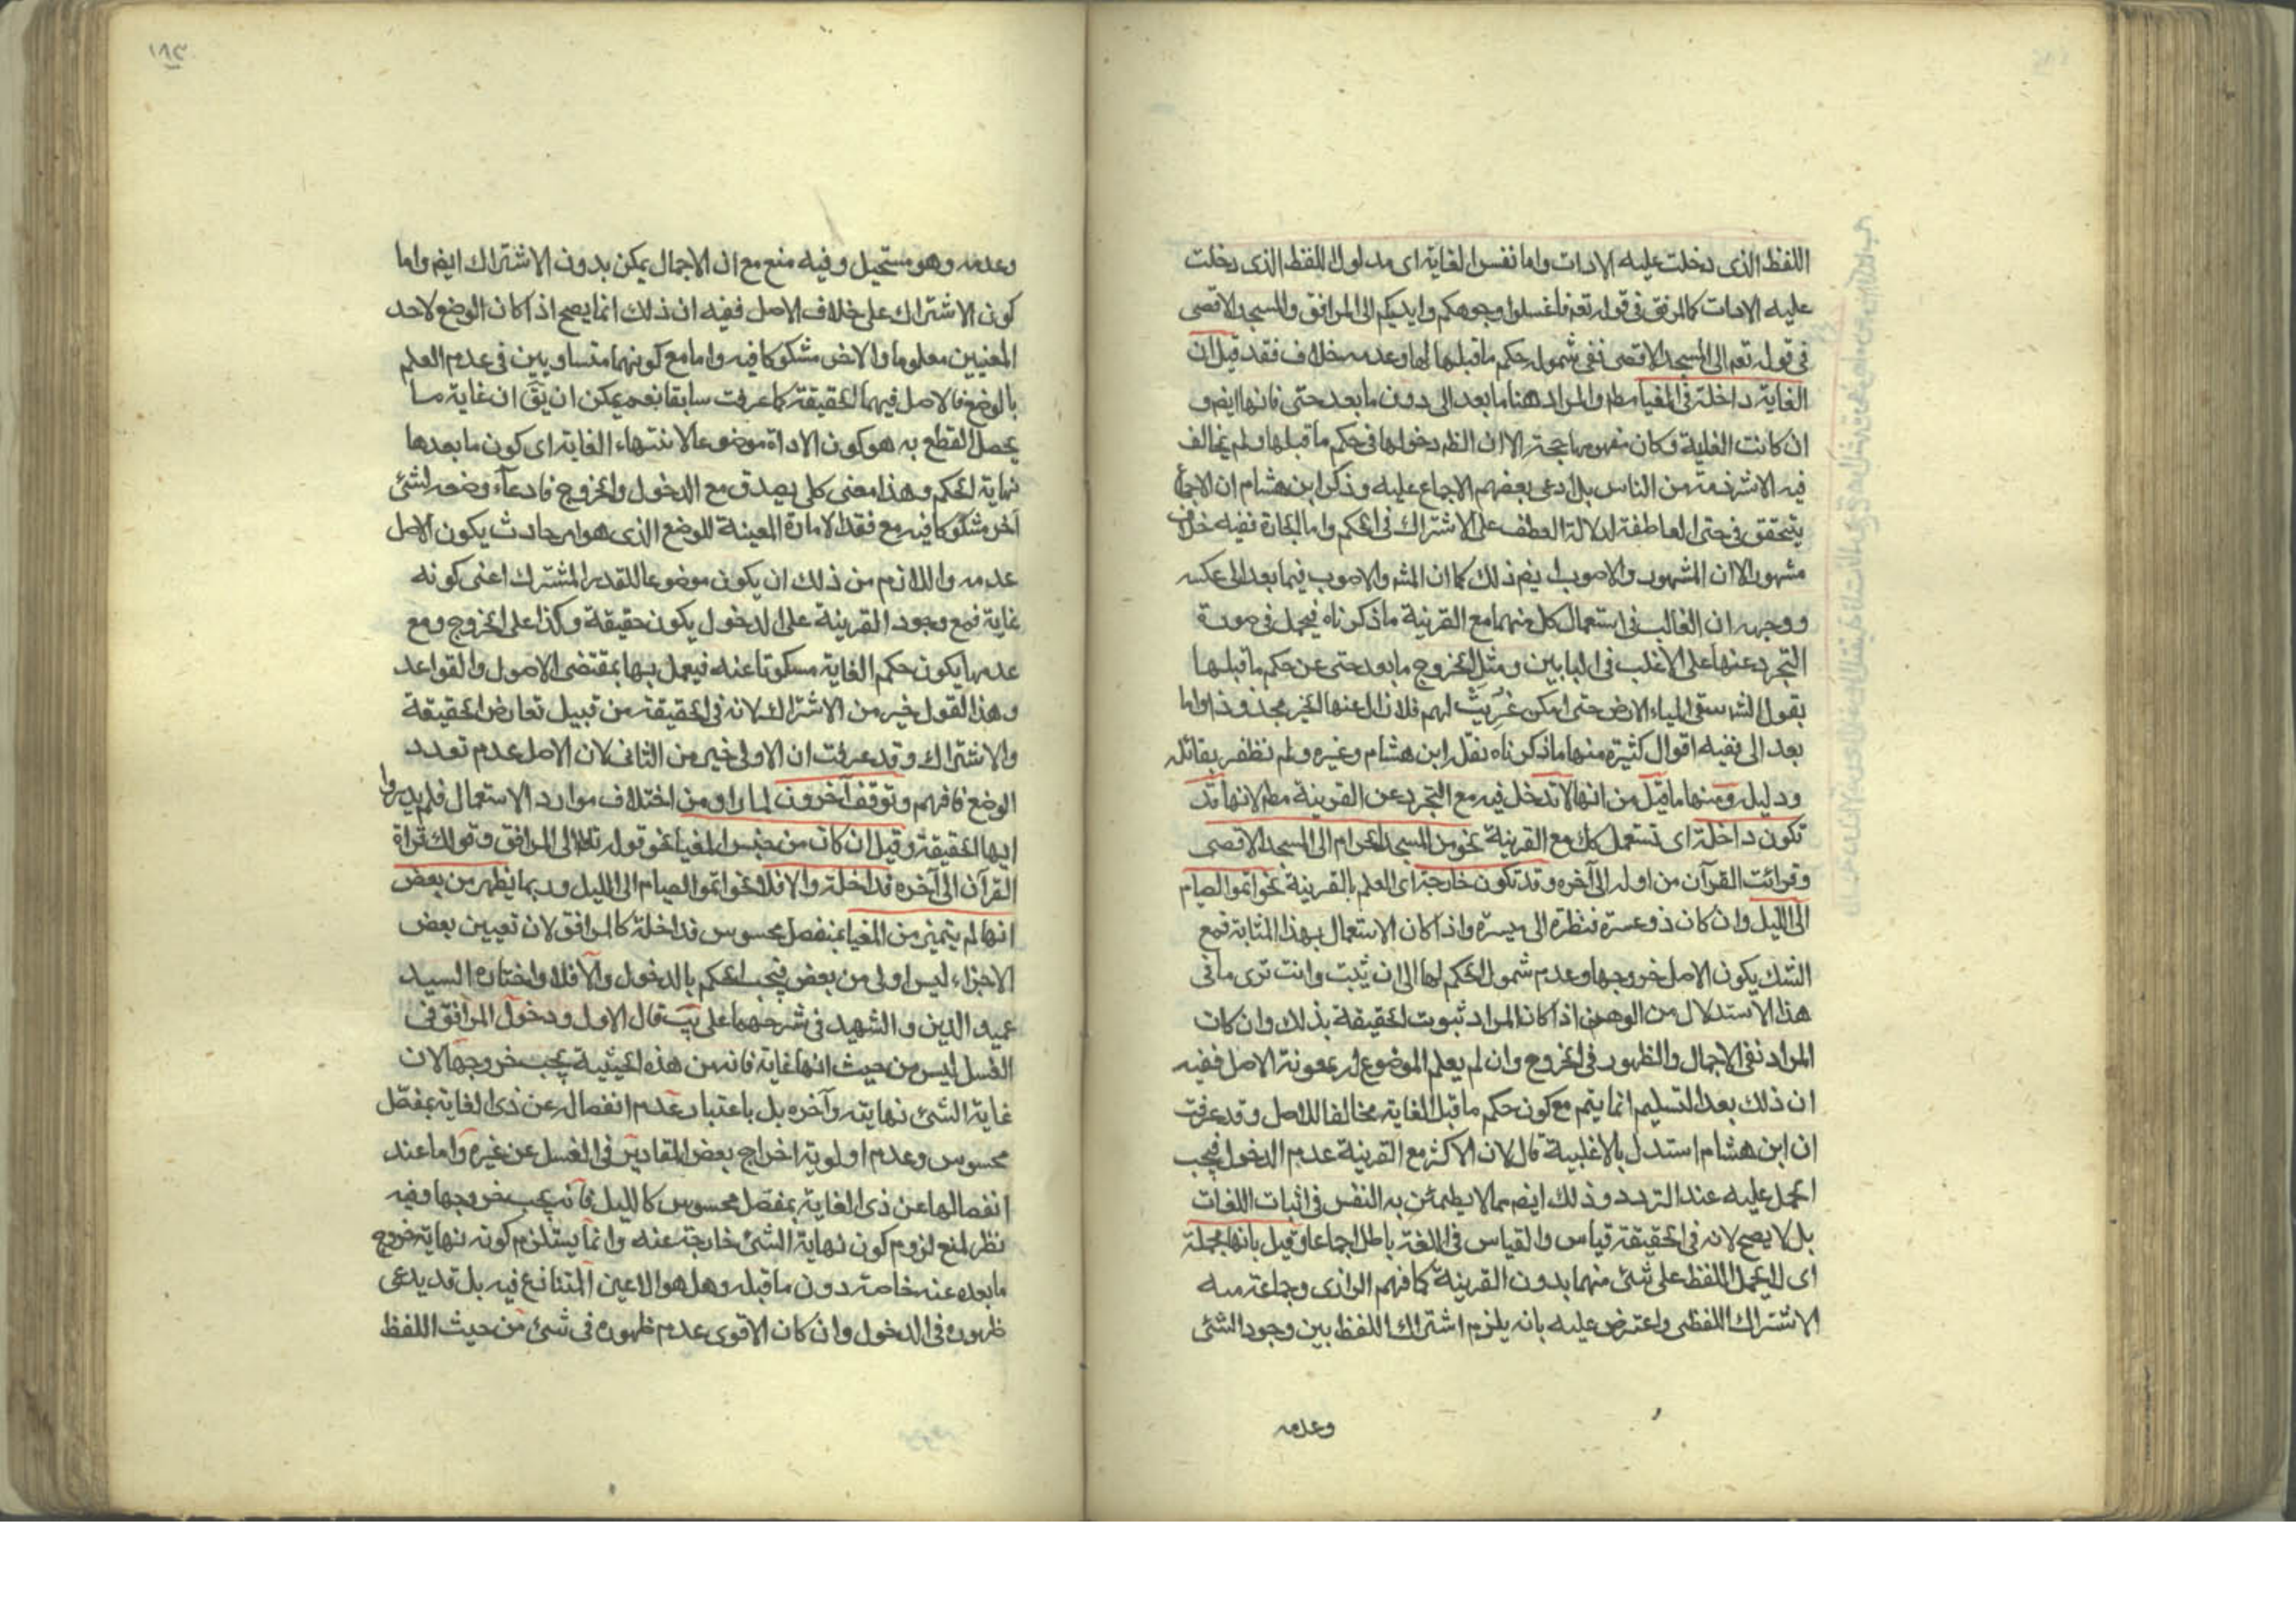 اللفظ الذى دخلت عليه الادات واما نفس الغاية اى مدلول اللفظ الذى دخلت
عليه الادات كالمرفق فى قوله تعم فاغسلوا وجوهكم وايديكم الى المرافق والمسجد الاقصى
فى قوله تعم الى المسجد الاقصى ففى شمول حكم ما قبلها لها وعدمه خلاف فقد قيل ان
الغاية داخلة فى المغيا مطم والمراد هنا ما بعد الى دون ما بعد حتى فانها ايضم و
ان كانت الغاية وكان مفهومها حجة الا ان الظم دخولها فى حكم ما قبلها ولم يخالف
فيه الا شرذمة من الناس بل ادعى بعضهم الاجماع عليه وذكر ابن هشام ان الاجماع
يتحقق فى حتى العاطفة لدلالة العطف على الاشتراك فى الحكم واما الجارة ففيه خلاف
مشهور الا ان المشهور والاصوب ايضم ذلك كما ان المشه والاصوب فيما بعد الى عكسه
ووجهه ان الغالب فى استعمال كل منهما مع القرينة ما ذكرناه فيحمل فى صورة
التجرد عنها على الاغلب فى البابين ومثل لخروج ما بعد حتى عن حكم ما قبلها
بقول الشه سقى الحياء الارض حتى امكن عزيت لهم فلا زال عنها الخير مجذوذا واما
بعد الى ففيه اقوال كثيرة منها ما ذكرناه نقله ابن هشام وغيره ولم نظفر بقائله
ودليله ومنها ما قيل من انها لا تدخل فيه مع التجرد عن القرينة مطم لانها قد
تكون داخلة اى تستعمل كك مع القرينة نحو من المسجد الحرام الى المسجد الاقصى
وقرائت القرآن من اوله الى آخره وقد تكون خارجة اى العلم بالقرينة نحو اتموا الصيام
الى الليل وان كان ذو عسرة فنظرة الى ميسرة واذا كان الاستعمال بهذا المثابة فمع
الشك يكون الاصل خروجها وعدم شمول الحكم لها الى ان يثبت وانت ترى ما فى
هذا الاستدلال من الوهن اذا كان المراد ثبوت الحقيقة بذلك وان كان
المراد نفى الاجمال والظهور فى الخروج وان لم يعلم الموضوع له بمعونة الاصل ففيه
ان ذلك بعد التسليم انما يتم مع كون حكم ما قبل الغاية مخالفا للاصل وقد عرفت
ان ابن هشام استدل بالاغلبية قال لان الاكثر مع القرينة عدم الدخول فيجب
الحمل عليه عند التردد وذلك ايضم مما لا يطمئن به النفس فى اثبات اللغات
بل لا يصح لانه فى الحقيقة قياس والقياس فى اللغة باطل اجماعا وقيل بانها مجملة
اى لا يحمل اللفظ على شئ منهما بدون القرينة كما فهم الرازى وجماعة منه
الاشتراك اللفظى واعترض عليه بانه يلزم اشتراك اللفظ بين وجود الشئ
وعدمه
١٨٣
وعدمه وهو مستحيل وفيه منع مع ان الاجمال يمكن بدون الاشتراك ايضم واما
كون الاشتراك على خلاف الاصل ففيه ان ذلك انما يصح اذا كان الوضع لاحد
المعنيين معلوما والاخر مشكوكا فيه واما مع كونهما متساويين فى عدم العلم
بالوضع فالاصل فيهما الحقيقة كما عرفت سابقا نعم يمكن ان يق ان غاية ما
يحصل القطع به هو كون الاداة موضوعا لانتهاء الغاية اى كون ما بعدها
نهاية الحكم وهذا معنى كلى يصدق مع الدخول والخروج فادعاء وضعه لشئ
آخر مشكوكا فيه مع فقد الامارة المعينة للوضع الذى هو امر حادث يكون الاصل
عدمه واللازم من ذلك ان يكون موضوعا للقدر المشترك اعنى كونه
غاية فمع وجود القرينة على الدخول يكون حقيقة وكذا على الخروج ومع
عدمها يكون حكم الغاية مسكوتا عنه فيعمل بها بمقتضى الاصول والقواعد
وهذا القول خير من الاشتراك لانه فى الحقيقة من قبيل تعارض الحقيقة
والاشتراك وقد عرفت ان الاولى خير من الثانى لان الاصل عدم تعدد
الوضع فافهم وتوقف آخرون لما راو من اختلاف موارد الاستعمال فلم يدروا
ايها الحقيقة وقيل ان كان من جنس المغيا نحو قوله تعالى الى المرافق وقولك قراة
القرآن الى آخره فداخلة والا فلا نحو اتموا الصيام الى الليل وربما يظهر من بعض
انها لم يتميز من المغيا بمنفصل محسوس فداخلة كالمرافق لان تعيين بعض
الاجزاء ليس اولى من بعض فيجب الحكم بالدخول والا فلا واختاره السيد
عميد الدين والشهيد فى شرحهما على يب قال الاول ودخول المرافق فى
الغسل ليس من حيث انها غاية فانه من هذه الحيثية يجب خروجها لان
غاية الشئ نهايته وآخره بل باعتبار عدم انفصاله عن ذى الغاية بمفصل
محسوس وعدم اولوية اخراج بعض المقادير فى الغسل عن غيره واما عند
انفصالها عن ذى الغاية بمفصل محسوس كالليل فانه يجب خروجها وفيه
نظر لمنع لزوم كون نهاية الشئ خارجة عنه وانما يستلزم كونه نهاية خروج
ما بعده عنه خاصة دون ما قبله وهل هو الا عين المتنازع فيه بل قد يدعى
ظهوره فى الدخول وان كان الاقوى عدم ظهوره فى شئ من حيث اللفظ